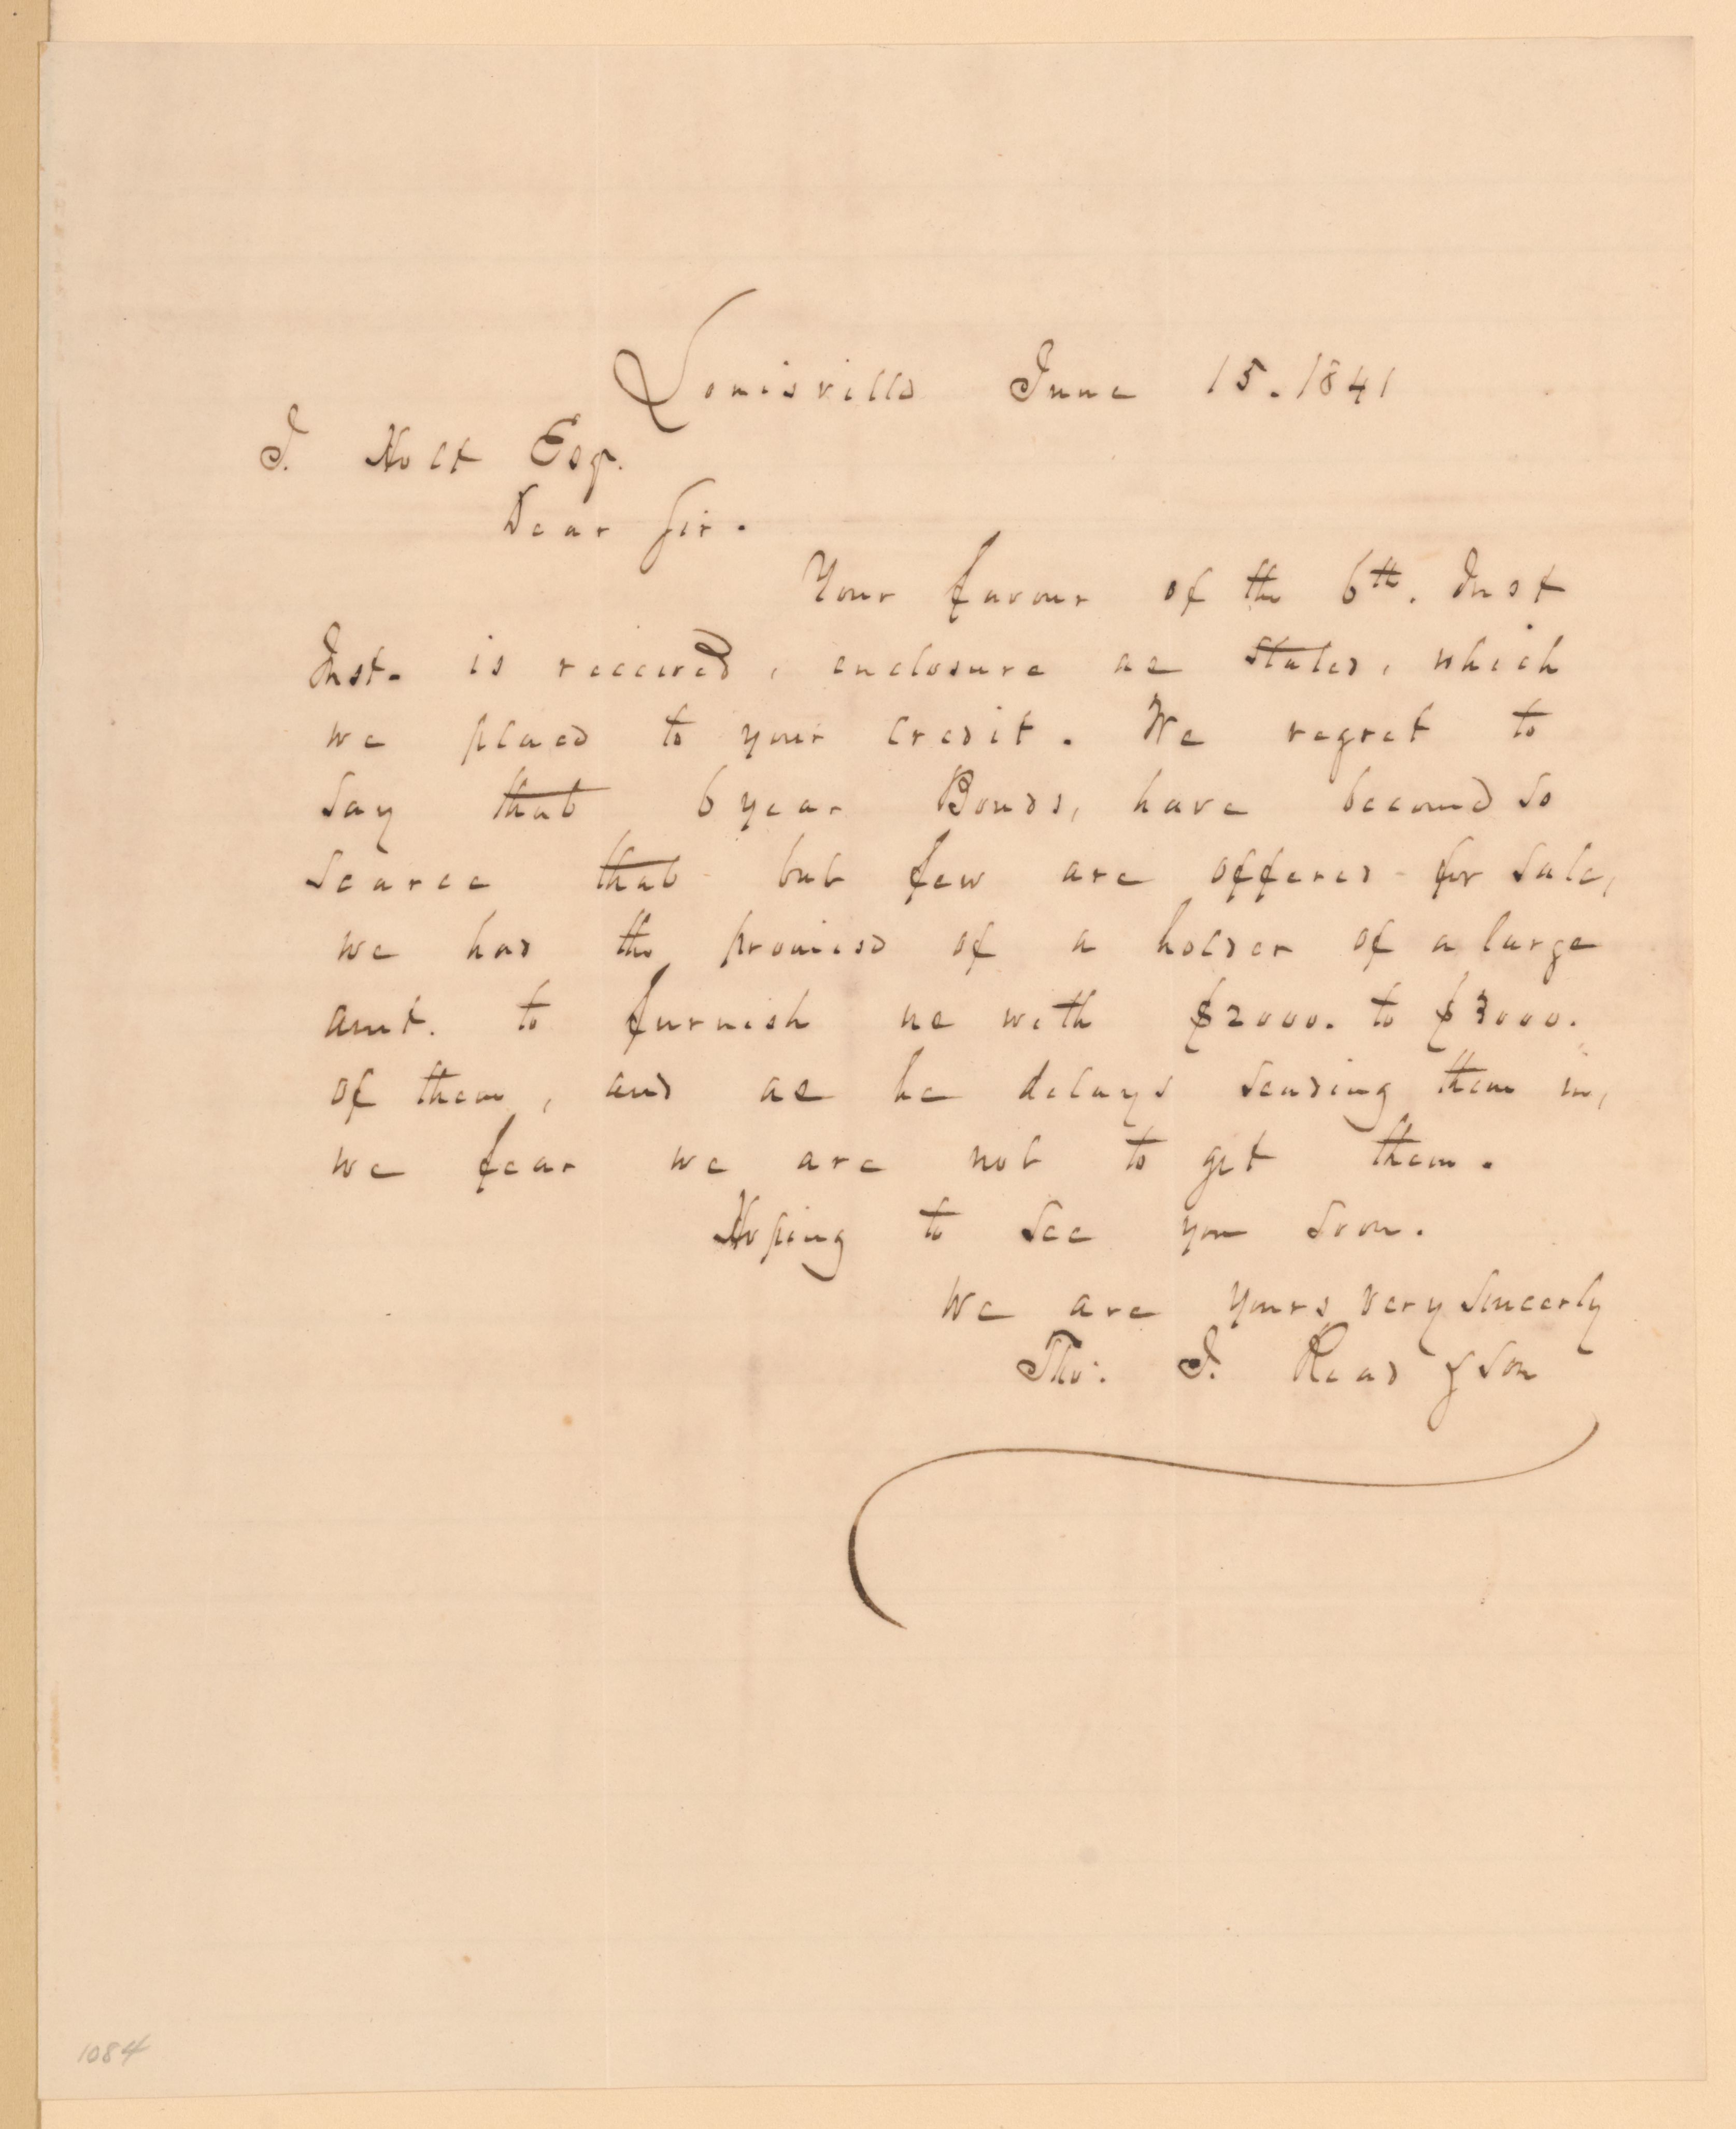 Louisville June 15. 1841
J. Holt Esqr.
Dear Sir.
Your favour of the 6th. Inst
Inst. is received, enclosure as stated, which
we placed to your credit. We regret to
say that 6 year Bonds, have become so
scarce that but few are offered for sale,
we had the promise of a holder of a large
amt. to furnish us with $2000. to $3000.
of them, and as he delays sending them in,
we fear we are not to get them.
Hoping to see you soon.
We are yours very sincerly
Tho: J. Read & Son
1084